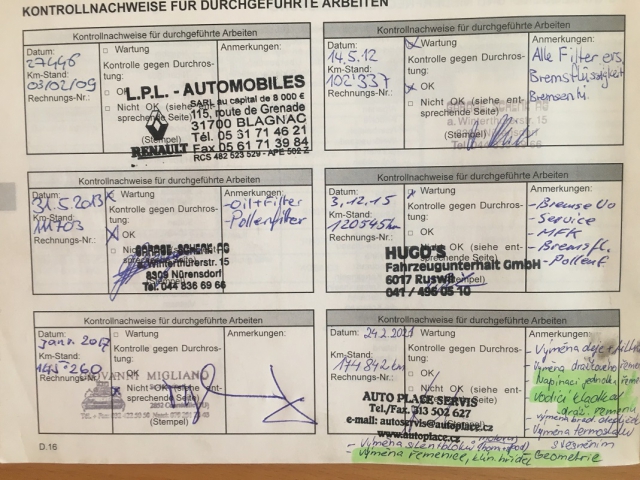 KONTROLLNACHWEISE FÜR DURCHGEFÜHRTE ARBEITEN
Kontrollnachweise für durchgeführte Arbeiten
Datum:
27446
Km-Stand:
03/02/09
Rechnungs-Nr.:
□ Wartung
Kontrolle gegen Durchros-
tung:
□ OK
□ Nicht OK (siehe ent-
sprechende Seite)
(Stempel)
Anmerkungen:
L.P.L - AUTOMOBILES
SARL au capital de 8 000 €
115, route de Grenade
31700 BLAGNAC
Tél. 05 31 71 46 21
Fax 05 61 71 39 84
RCS 482 523 529 - APE 502 Z
RENAULT
Kontrollnachweise für durchgeführte Arbeiten
Datum:
14.5.12
Km-Stand:
102'337
Rechnungs-Nr.:
Wartung
Kontrolle gegen Durchros-
tung:
OK
□ Nicht OK (siehe ent-
sprechende Seite)
(Stempel)
Anmerkungen:
Alle Filter ers.
Bremsflüssigkeit
a. Winterthurerstr. 15
Kontrollnachweise für durchgeführte Arbeiten
Datum:
31.5.2013
Km-Stand:
Rechnungs-Nr.:
Wartung
Kontrolle gegen Durchros-
tung:
OK
□ Nicht OK (siehe ent-
sprechende Seite)
Anmerkungen:
- Oil+Filter
- Pollenfilter
GARAGE SCHENK AG
a. Winterthurerstr. 15
8309 Nürensdorf
Tel. 044 836 69 66
Kontrollnachweise für durchgeführte Arbeiten
Datum:
3.12.15
Km-Stand:
120545km
Rechnungs-Nr.:
Wartung
Kontrolle gegen Durchros-
tung:
□ OK
□ Nicht OK (siehe ent-
sprechende Seite)
(Stempel)
Anmerkungen:
- Bremse Vo
- Service
- MFK
- Bremsfl.
- Pollenf
HUGO'S
Fahrzeugunterhalt GmbH
6017 Ruswil
041 / 496 05 10
Kontrollnachweise für durchgeführte Arbeiten
Datum:
Janv. 2017
Km-Stand:
145'260
Rechnungs-Nr.:
□ Wartung
Kontrolle gegen Durchros-
tung:
□ OK
Nicht OK (siehe ent-
sprechende Seite)
(Stempel)
Anmerkungen:
GIOVANNI MIGLIANO
Kontrollnachweise für durchgeführte Arbeiten
Datum:
24.2.2021
Km-Stand:
174842km
Rechnungs-Nr.:
□ Wartung
Kontrolle gegen Durchros-
tung:
□ OK
□ Nicht OK (siehe ent-
sprechende Seite)
Anmerkungen:
- Výměna oleje + filtr
- Výměna drážkového řeme
Napínací jednotka řeme
Vodící kladka
- Výměna termostatu
s těsněním
- Geometrie
AUTO PLACE SERVIS
Tel./Fax. 313 502 627
e-mail: autoservis@autoplace.cz
www.autoplace.cz
- Výměna silentbloků
- Výměna řemenice, klik. hřídel
D.16